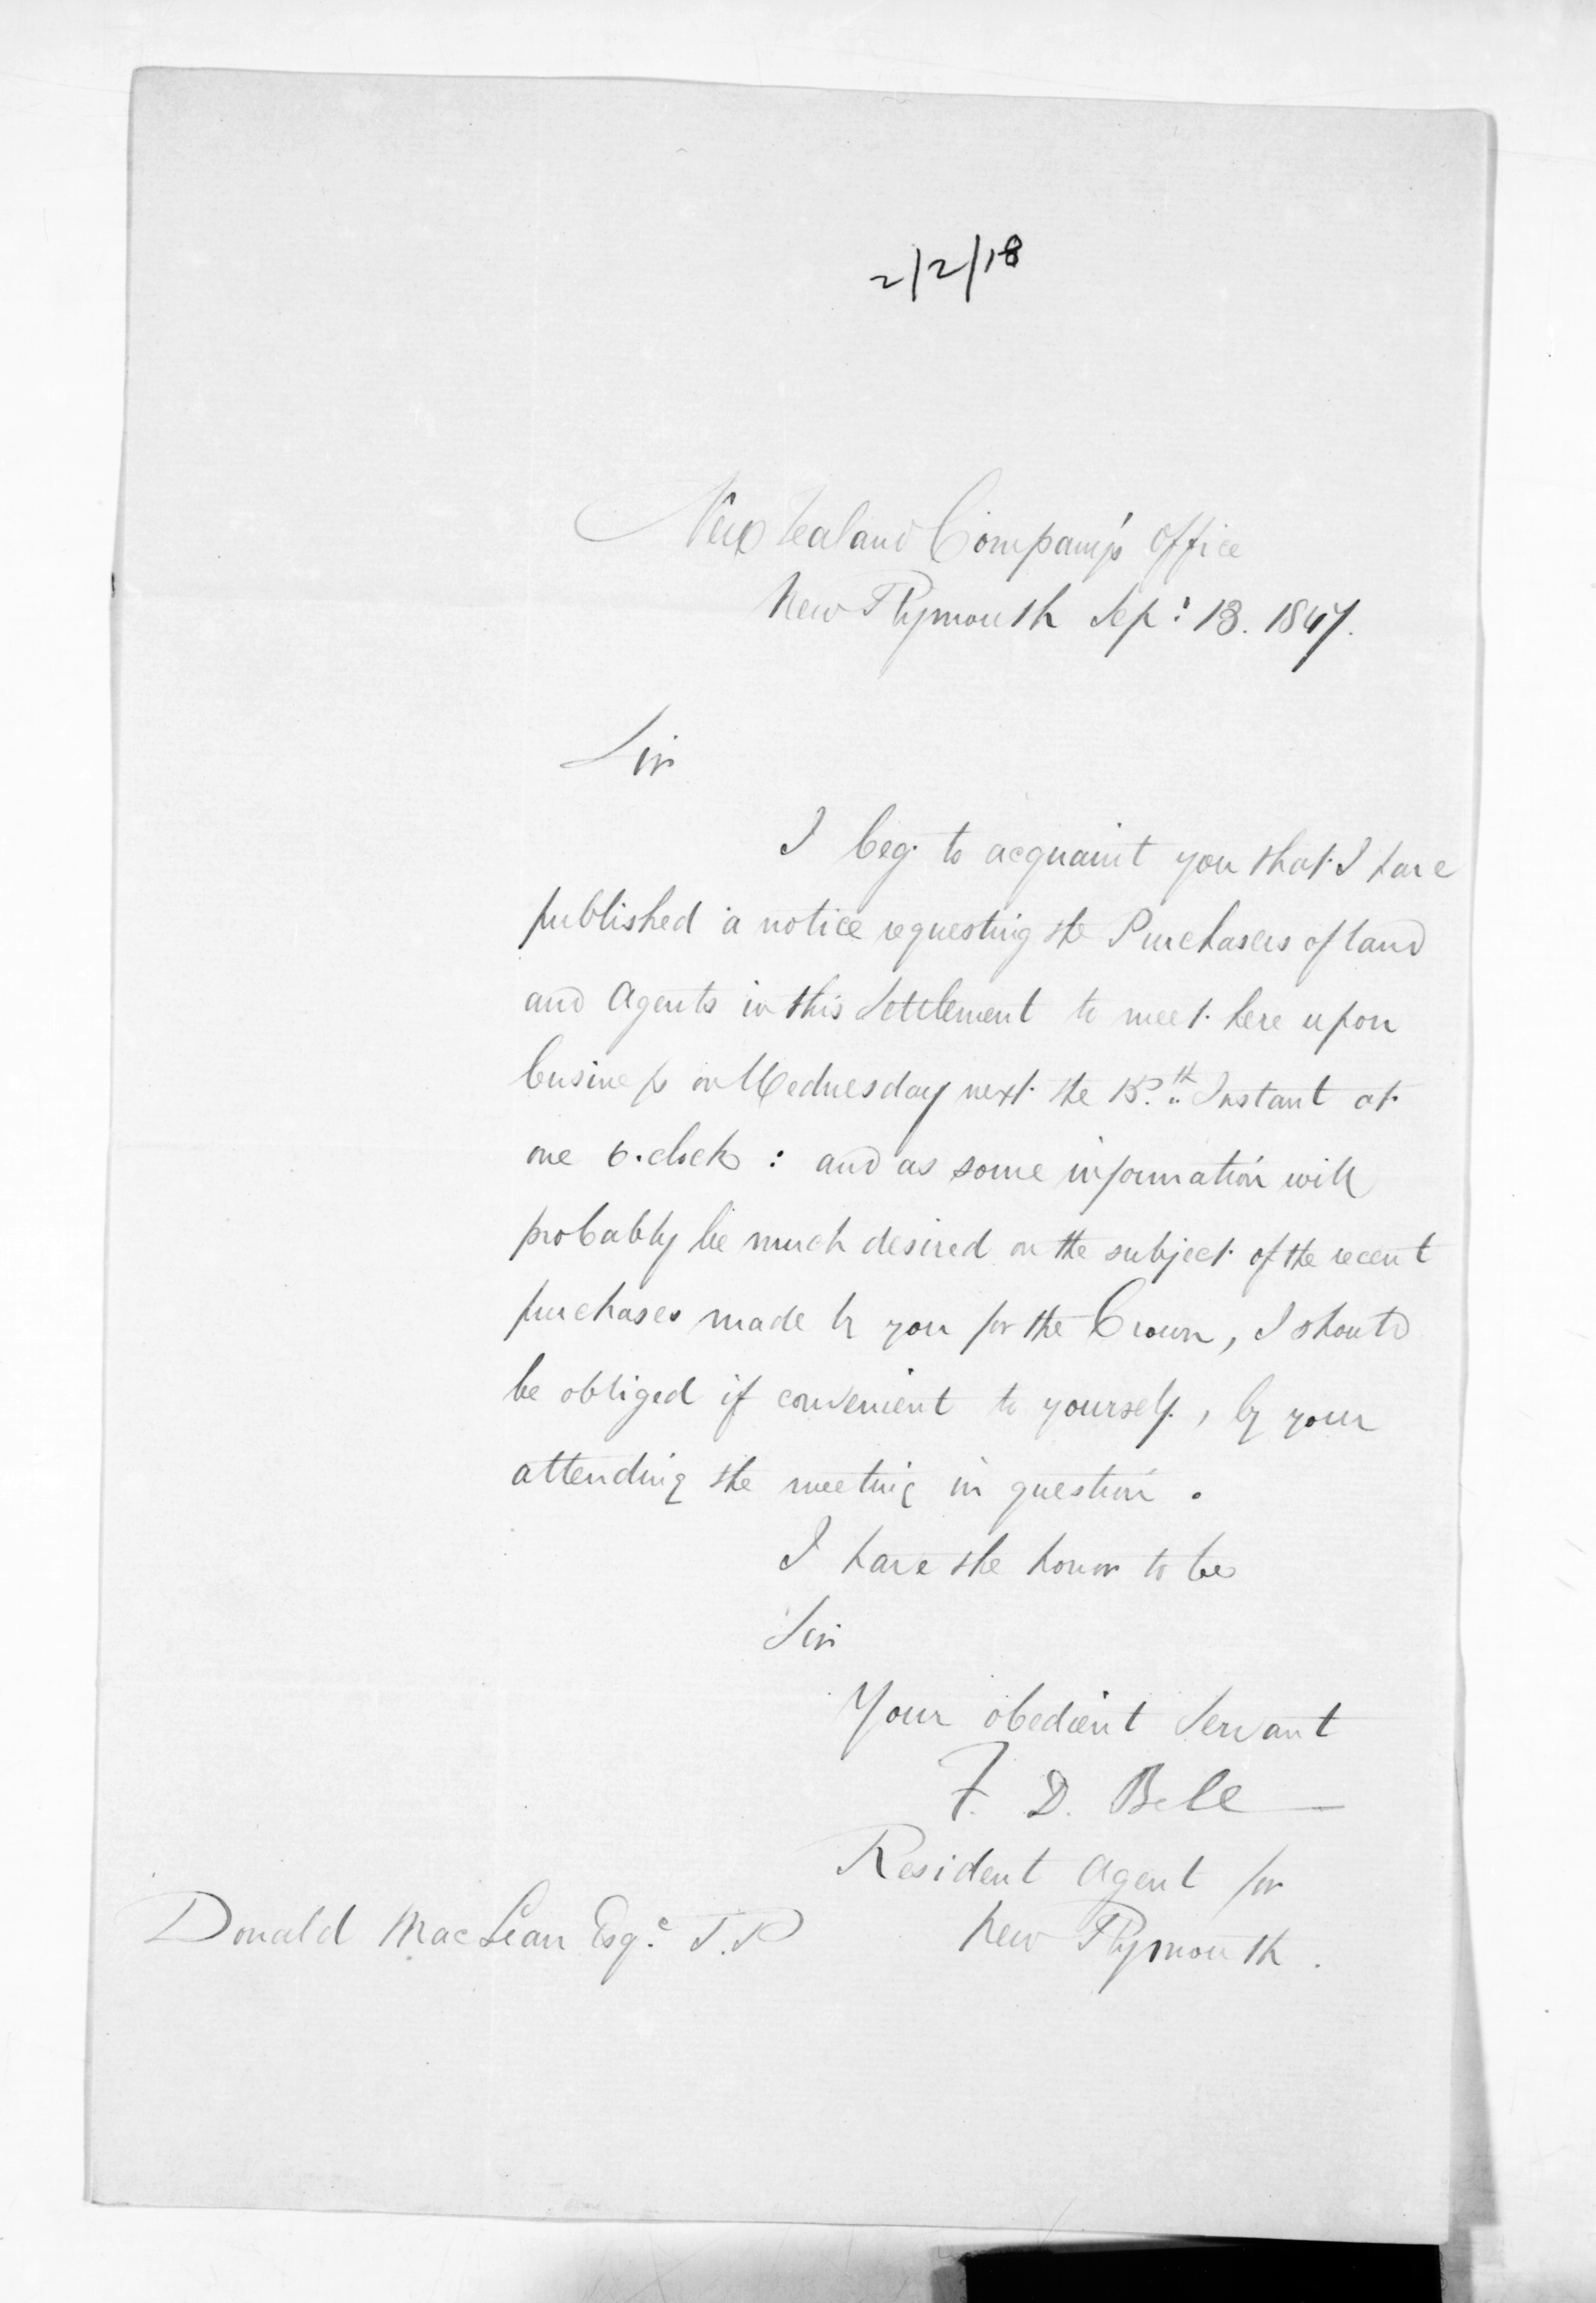 2/2/18
New Zealand Company's Office
New Plymouth Sep: 13. 1847.
Sir
I beg to acquaint you that I have
published a notice requesting the Purchasers of land
and Agents in this Settlement to meet here upon
business on Wednesday next the 15th Instant at
one o.clock : and as some information will
probably be much desired on the subject of the recent
purchases made by you for the Crown, I should
be obliged if convenient to yourself, by your
attending the meeting in question .
I have the honor to be
Sir
Your obedient Servant
F. D. Bell
Resident Agent for
New Plymouth .
Donald MacLean Esqe. J.P